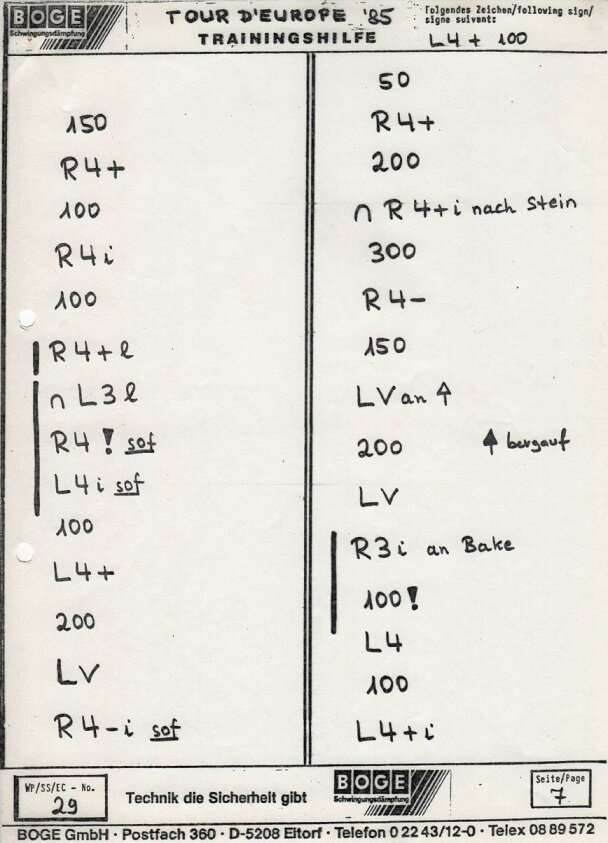 BOGE
Schwingungsdämpfung
TOUR D'EUROPE '85
TRAININGSHILFE
Folgendes Zeichen/following sign/
signe suivant:
L4+ 100
150
R4+
100
R4i
100
R4+l
∩ L3l
R4! sof
L4i sof
100
L4+
200
LV
R4-i sof
50
R4+
200
∩ R4+i nach Stein
300
R4-
150
LV an ↑
200 ↑ bergauf
LV
R3i an Bake
100!
L4
100
L4+i
WP/SS/EC - No.
29
Technik die Sicherheit gibt
BOGE
Schwingungsdämpfung
Seite/Page
7
BOGE GmbH · Postfach 360 · D-5208 Eitorf · Telefon 0 22 43/12-0 · Telex 08 89 572